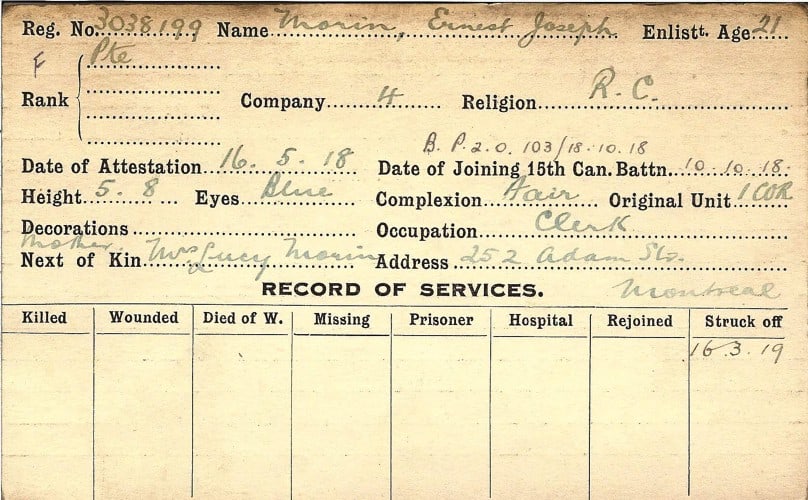 Reg. No. 3038199 Name Morin, Ernest Joseph Enlistt. Age 21
F Pte
Rank Company 4 Religion R.C.
B. P.2.0. 103/18.10.18
Date of Attestation 16. 5. 18 Date of Joining 15th Can. Battn. 10.10.18.
Height 5. 8 Eyes Blue Complexion Fair Original Unit 1 COR
Decorations Occupation Clerk
Mother.
Next of Kin Mrs Lucy Morin Address 252 Adam Str.
RECORD OF SERVICES. Montreal
Killed Wounded Died of W. Missing Prisoner Hospital Rejoined Struck off
16.3.19